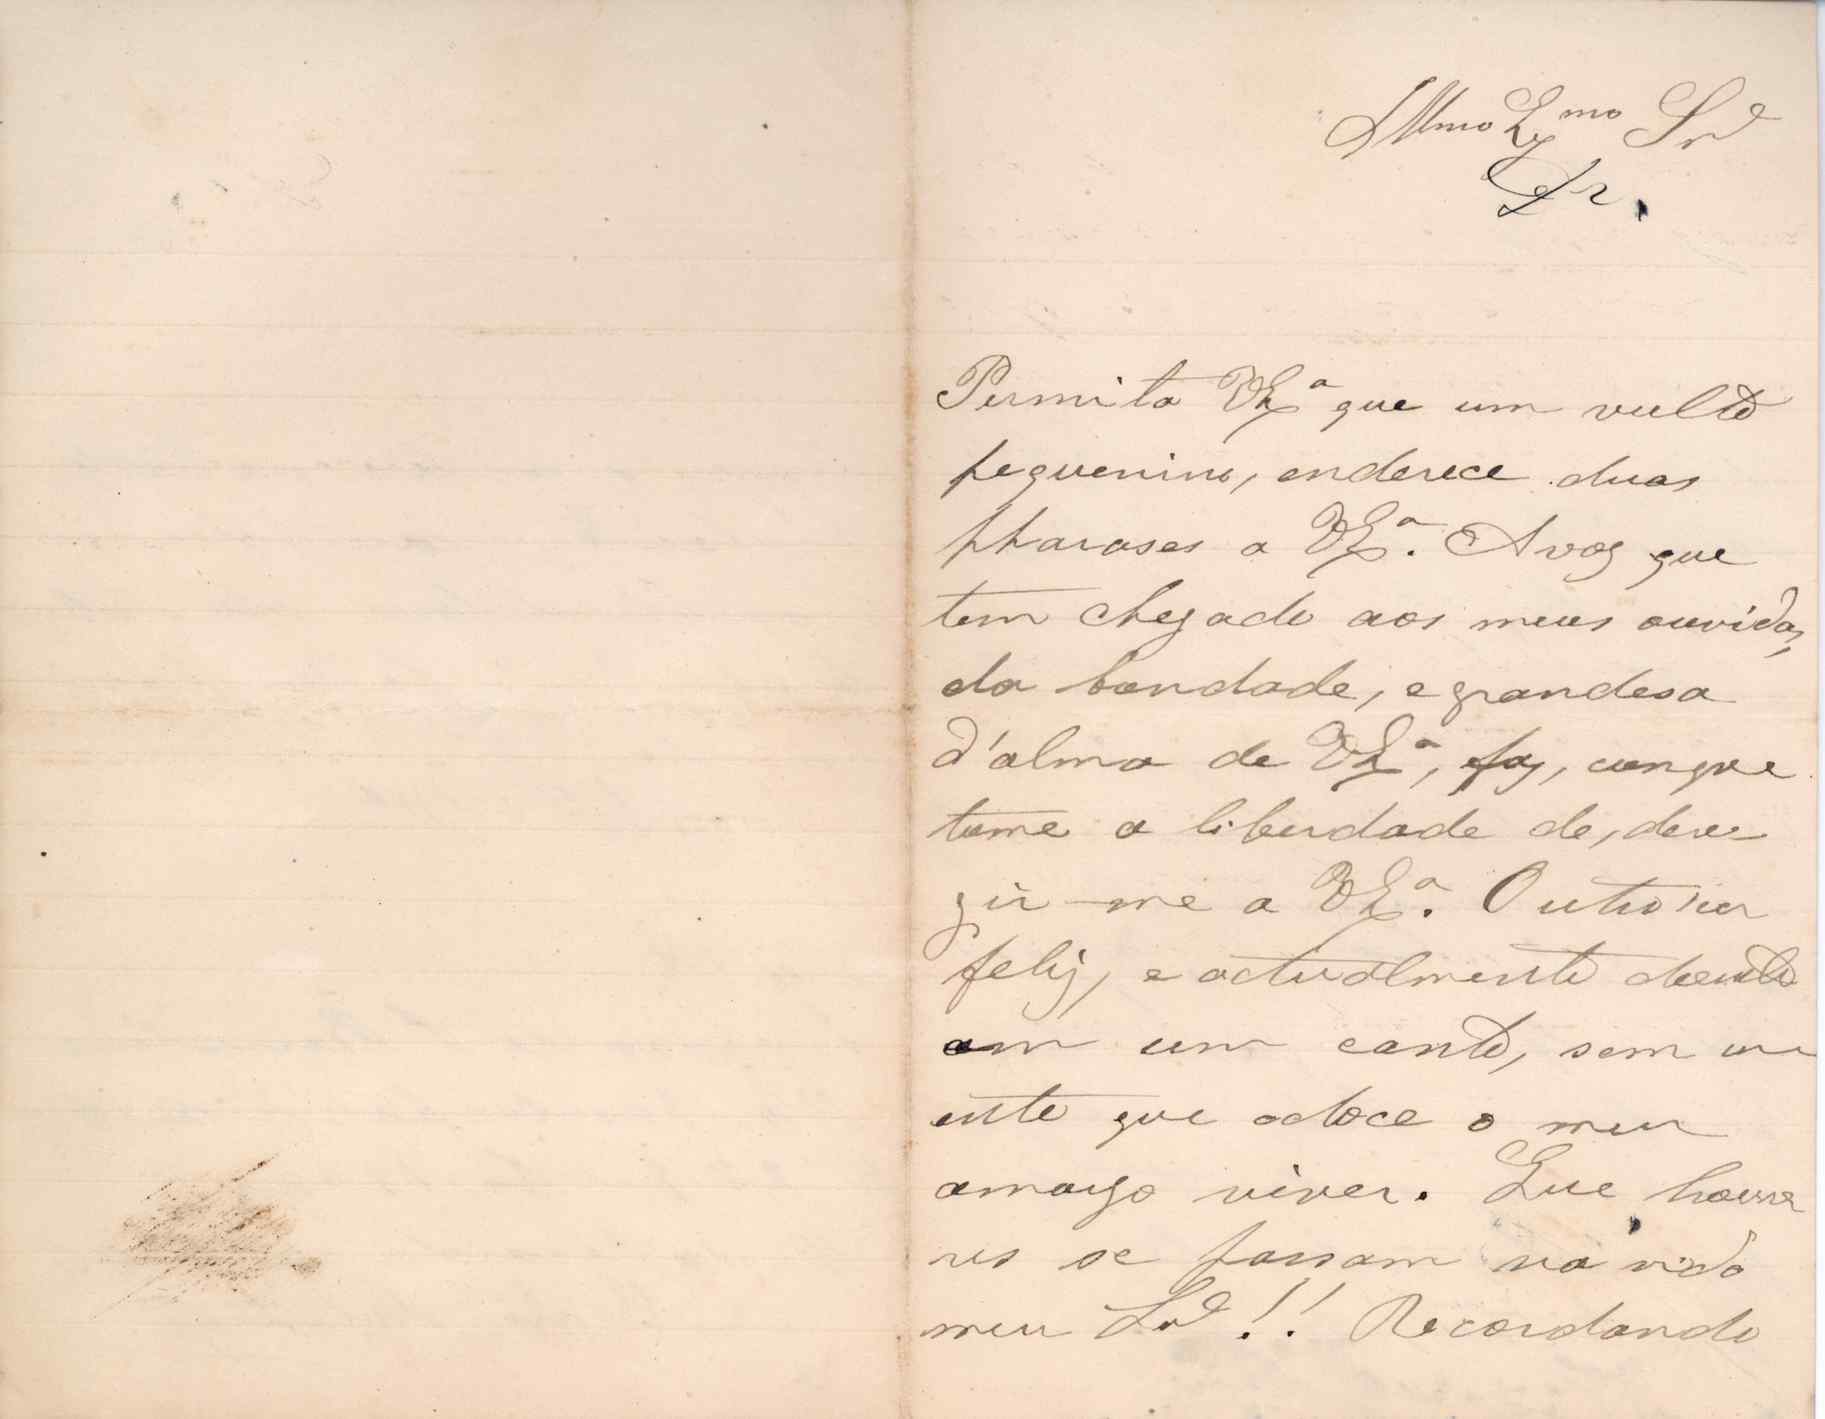 Illmo Exmo Snr
Dr.
Permita VExª que um vulto
pequenino, enderece duas
pharases a VExª. A voz que
tem chegado aos meus ouvidos,
da bondade, e grandesa
d'alma de VExª, faz, comque
tome a liberdade de, dere
gir-me a VExª. Outrora
feliz, e actualmente doente
em um canto, sem um
ente que adoce o meu
amargo viver. Que horro
res se passam na vida
meu Snr!! Recordando